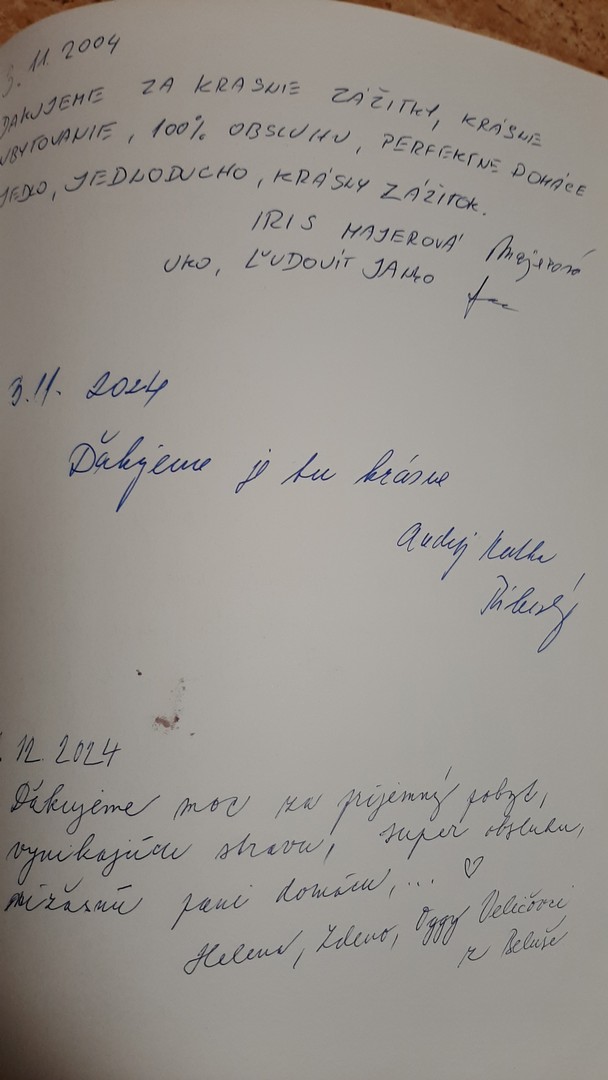 3. 11. 2004
ĎAKUJEME ZA KRÁSNE ZÁŽITKY, KRÁSNE
UBYTOVANIE, 100% OBSLUHU, PERFEKTNE DOMÁCE
JEDLO, JEDNODUCHO, KRÁSNY ZÁŽITOK.
IRIS MAJEROVÁ Majerová
UKO, ĽUDOVÍT JANKO
3.11. 2024
Ďakujeme je tu krásne
Andrej Katka
12. 2024
Ďakujeme moc za príjemný pobyt,
vynikajúcu stravu, super obsluhu,
úžasnú pani domácu,... ♡
Helena, Zdeno, Oggy Veličovci
z Beluše